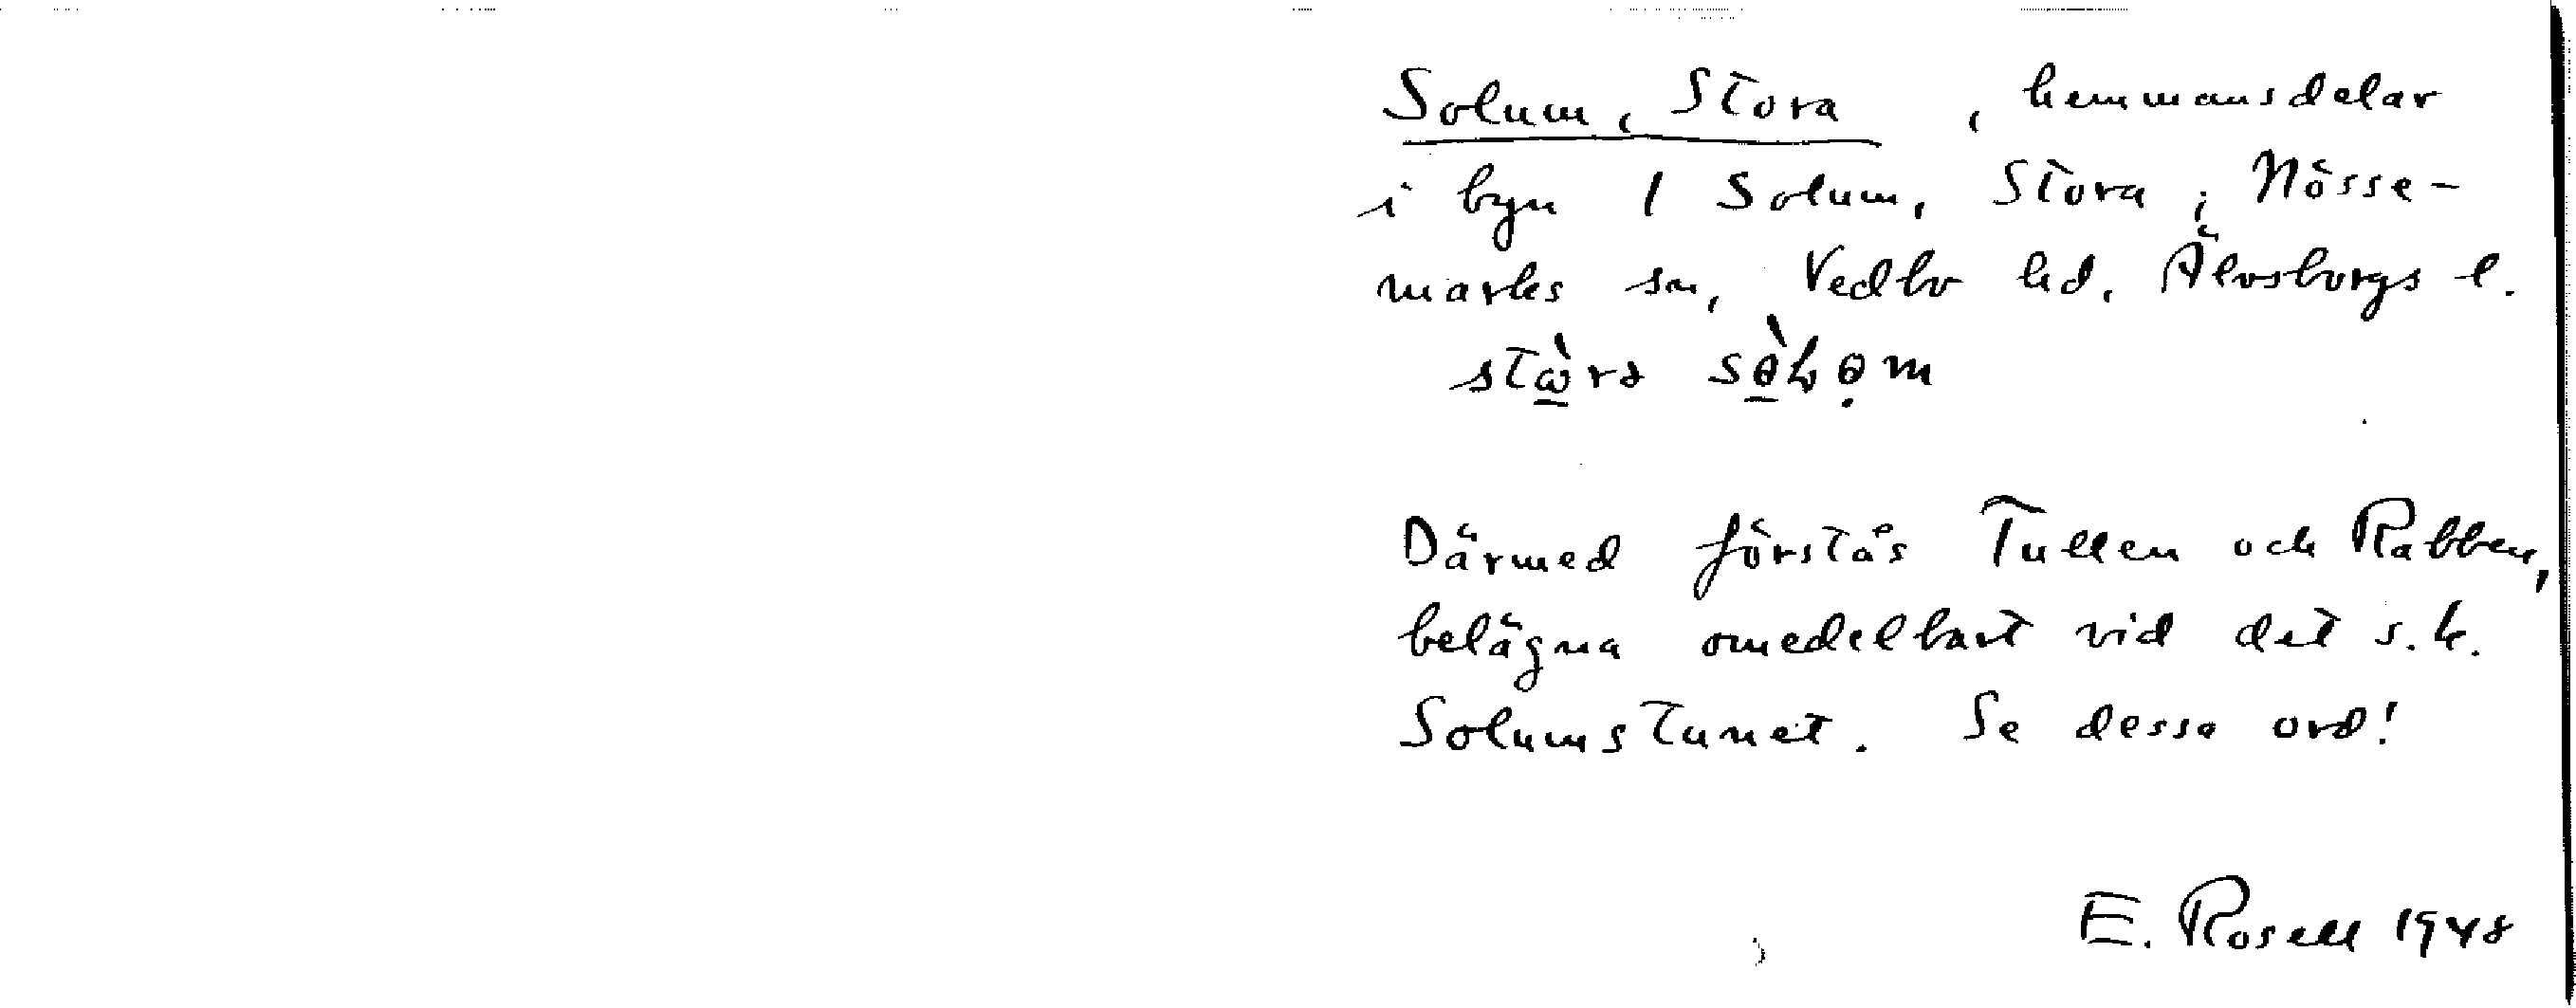 Solum, Stora , hemmansdelar
i byn 1 Solum, Stora i Nösse-
marks sn, Vedbo hd, Älvsborgs l.
Därmed förstås Tullen och Rabben,
belägna omedelbart vid det s.k.
Solumstunet. Se dessa ord!
E. Rosell 1948